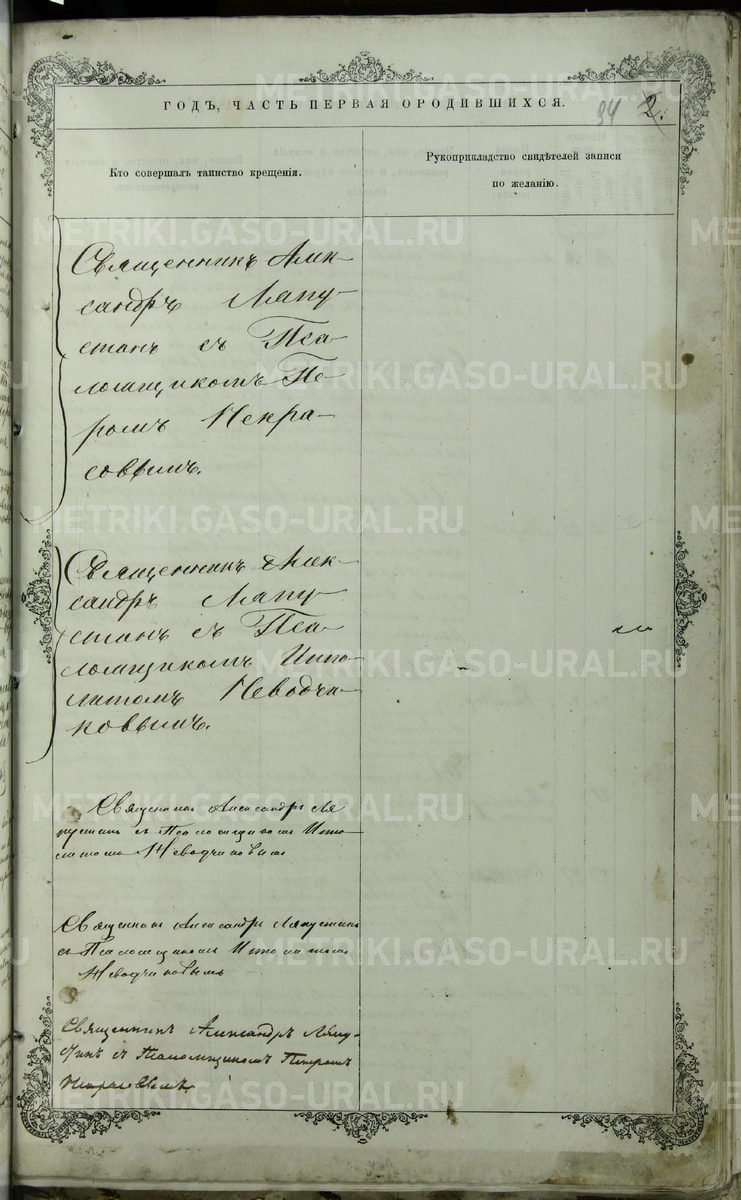 ГОДЪ, ЧАСТЬ ПЕРВАЯ О РОДИВШИХСЯ.
94 2.
Кто совершалъ таинство крещенія.
Рукоприкладство свидѣтелей записи
по желанію.
Священникъ Алек-
сандръ Ляпу-
стинъ съ Пса-
ломщикомъ Пе-
ромъ Некра-
совымъ.
Священникъ Алек-
сандръ Ляпу-
стинъ съ Пса-
ломщикомъ Иппо-
литомъ Неводчи-
ковымъ.
Священникъ Александръ Ля
пустинъ съ Псаломщикомъ Иппо
литомъ Неводчиковымъ
Священникъ Александръ Ляпустинъ
съ Псаломщикомъ Иполитомъ
Неводчиковымъ
Священникъ Александръ Ляпу-
стинъ съ Псаломщикомъ Петромъ
Некрасовымъ.
METRIKI.GASO-URAL.RU